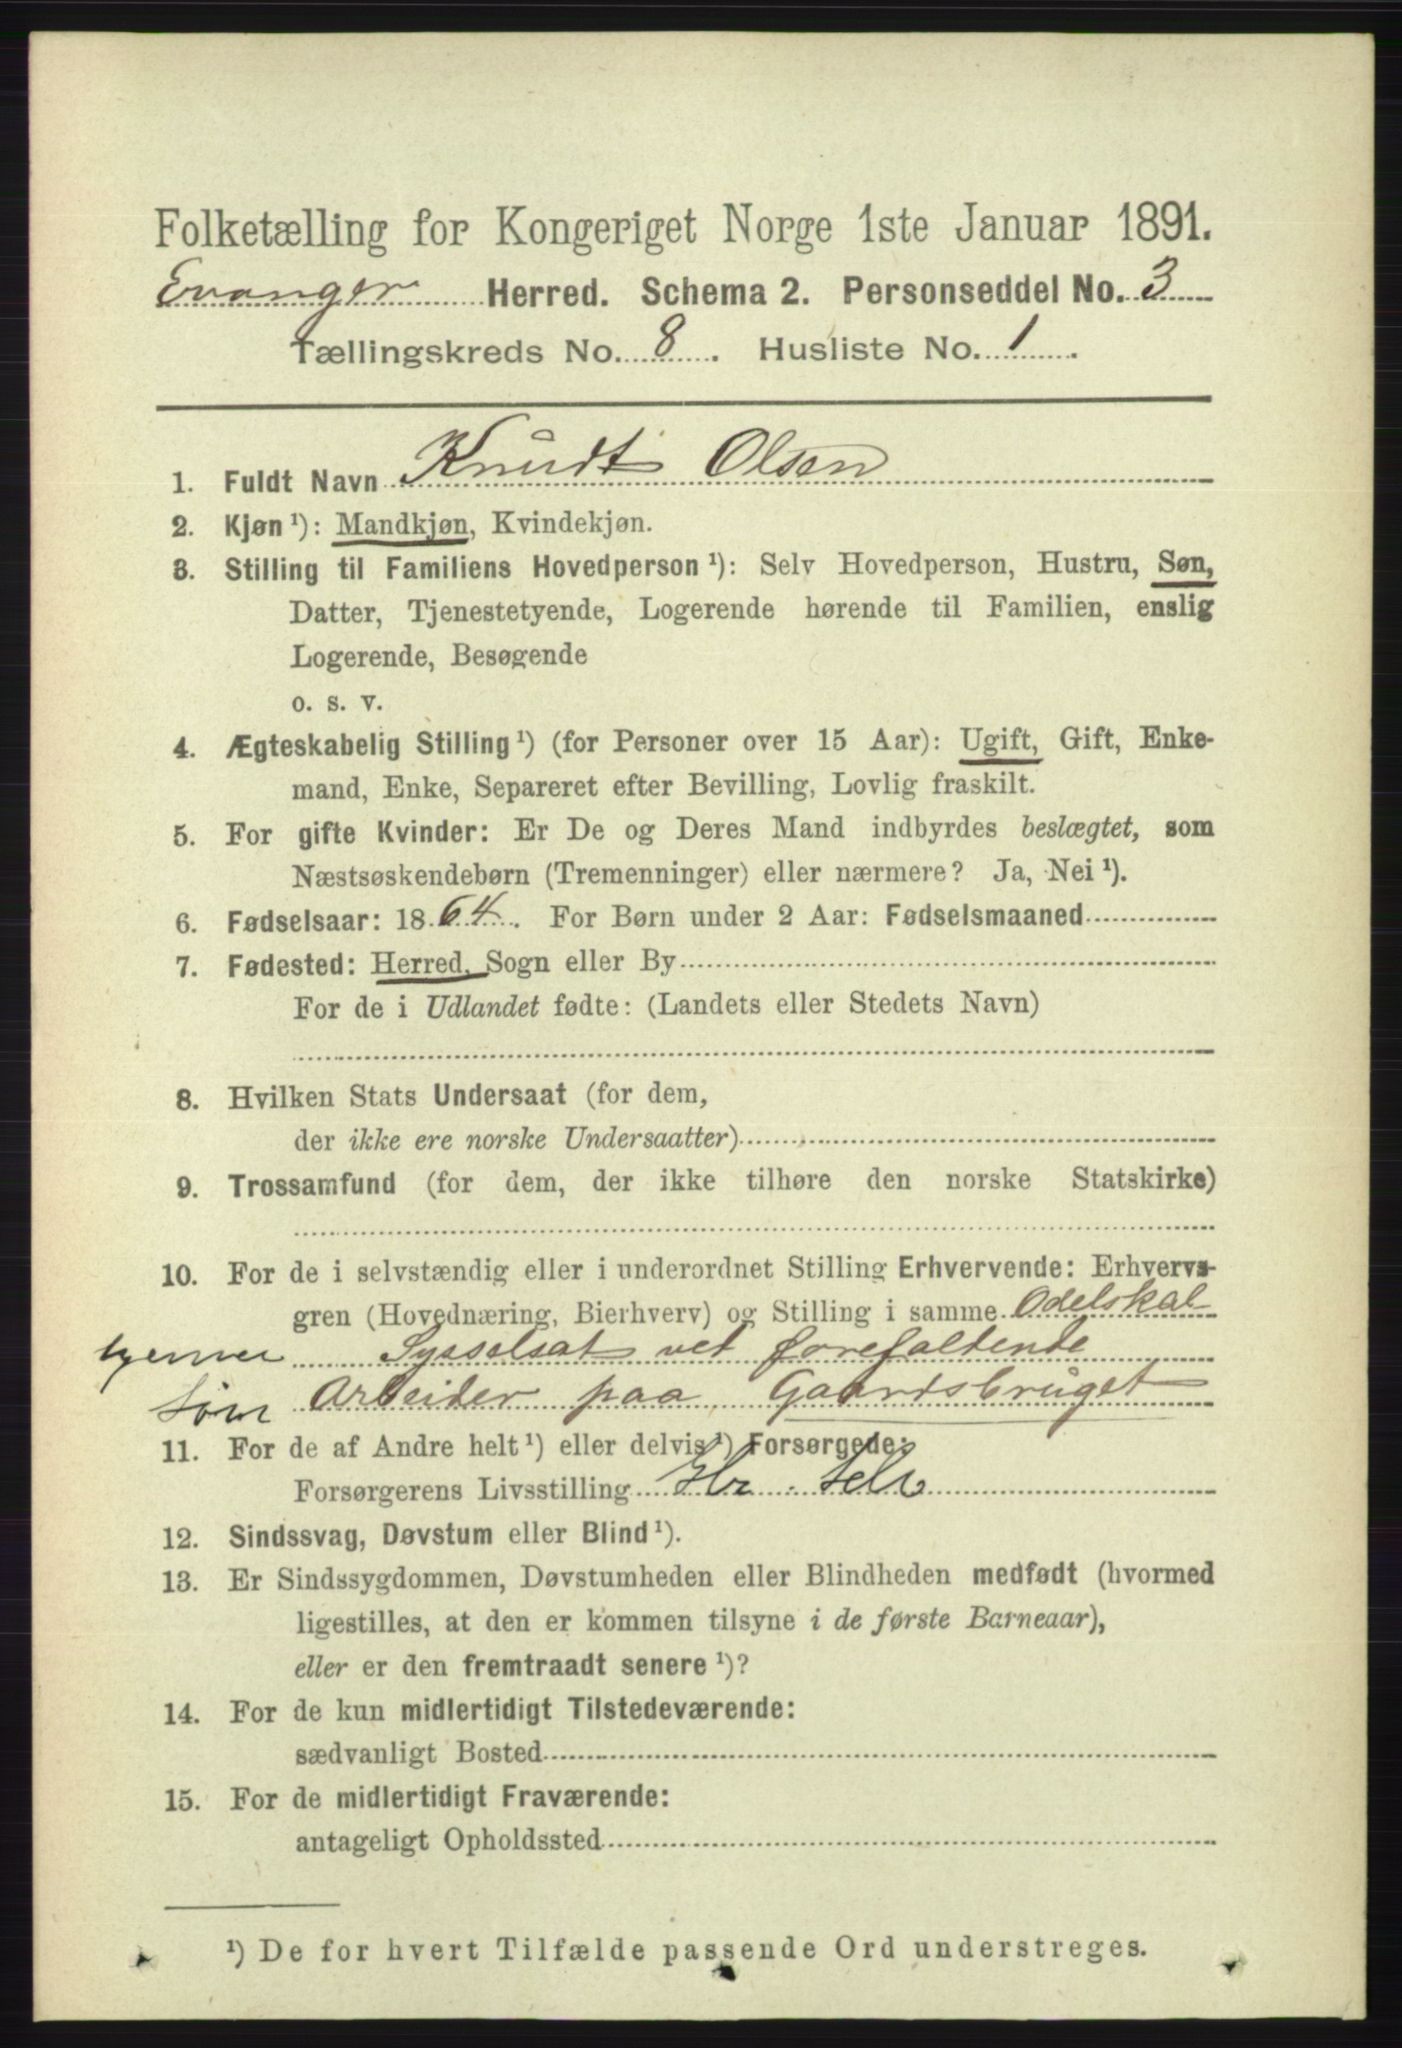 Folketælling for Kongeriget Norge 1ste Januar 1891.
Evanger Herred. Schema 2. Personseddel No. 3
Tællingskreds No. 8. Husliste No. 1.
1. Fuldt Navn Knudt Olsen
2. Kjøn ¹): Mandkjøn, Kvindekjøn.
3. Stilling til Familiens Hovedperson ¹): Selv Hovedperson, Hustru, Søn,
Datter, Tjenestetyende, Logerende hørende til Familien, enslig
Logerende, Besøgende
o. s. v.
4. Ægteskabelig Stilling ¹) (for Personer over 15 Aar): Ugift, Gift, Enke-
mand, Enke, Separeret efter Bevilling, Lovlig fraskilt.
5. For gifte Kvinder: Er De og Deres Mand indbyrdes beslægtet, som
Næstsøskendebørn (Tremenninger) eller nærmere? Ja, Nei ¹).
6. Fødselsaar: 1864. For Børn under 2 Aar: Fødselsmaaned
7. Fødested: Herred, Sogn eller By
For de i Udlandet fødte: (Landets eller Stedets Navn)
8. Hvilken Stats Undersaat (for dem,
der ikke ere norske Undersaatter)
9. Trossamfund (for dem, der ikke tilhøre den norske Statskirke)
10. For de i selvstændig eller i underordnet Stilling Erhvervende: Erhvervs-
gren (Hovednæring, Bierhverv) og Stilling i samme Odelskal
Sysselsat vet forefaldende
Søn Arbeider paa Gaardsbruget
11. For de af Andre helt ¹) eller delvis ¹) Forsørgede:
Forsørgerens Livsstilling
12. Sindssvag, Døvstum eller Blind ¹).
13. Er Sindssygdommen, Døvstumheden eller Blindheden medfødt (hvormed
ligestilles, at den er kommen tilsyne i de første Barneaar),
eller er den fremtraadt senere ¹)?
14. For de kun midlertidigt Tilstedeværende:
sædvanligt Bosted
15. For de midlertidigt Fraværende:
antageligt Opholdssted
¹) De for hvert Tilfælde passende Ord understreges.